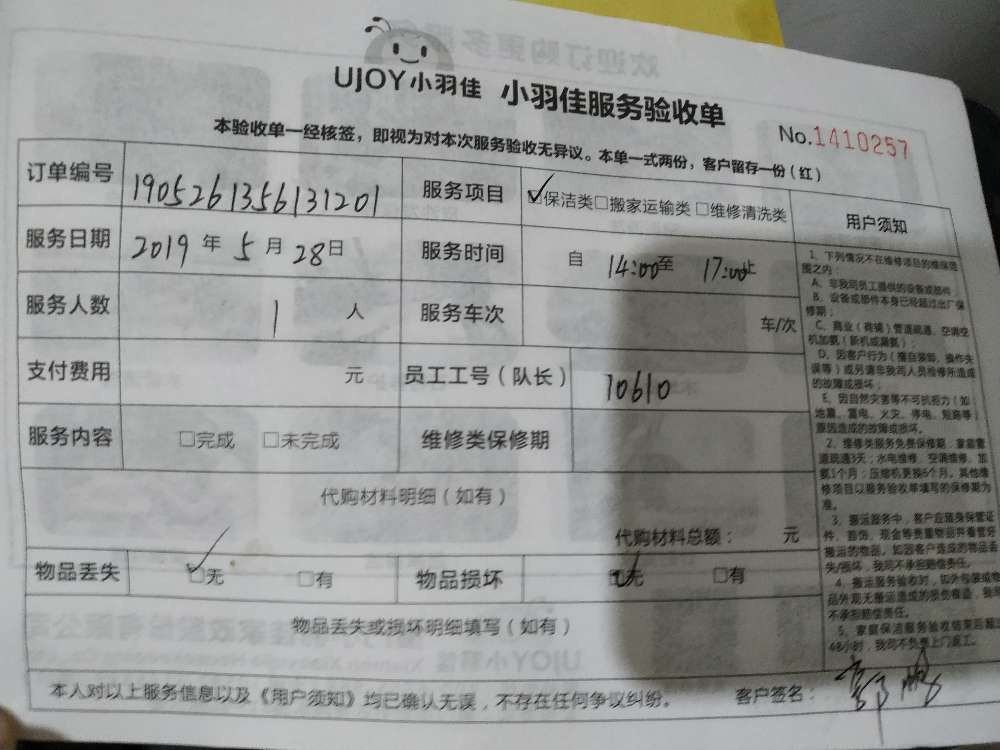 UJOY小羽佳 小羽佳服务验收单
No.1410257
本验收单一经核签，即视为对本次服务验收无异议。本单一式两份，客户留存一份（红）
订单编号 1905261356131201 服务项目 ☑保洁类□搬家运输类□维修清洗类 用户须知
服务日期 2019年5月28日 服务时间 自14:00至17:00止
服务人数 1人 服务车次 车/次
支付费用 元 员工工号（队长） 10610
服务内容 □完成 □未完成 维修类保修期
代购材料明细（如有）
代购材料总额： 元
物品丢失 ☑无 □有 物品损坏 ☑无 □有
物品丢失或损坏明细填写（如有）
本人对以上服务信息以及《用户须知》均已确认无误，不存在任何争议纠纷。 客户签名：
1、下列情况不在维修项目的维保范
围之内：
A、非我司员工提供的设备或部件；
B、设备或部件本身已经超过出厂保
修期；
C、商业（商铺）管道疏通、空调空
机加氨（新机或漏氨）；
D、因客户行为（擅自装卸、操作失
误等）或另请非我司人员维修所造成
的故障或损坏；
E、因自然灾害等不可抗拒力（如：
地震、雷电、火灾、停电、短路等）
原因造成的故障或损坏。
2、维修类服务免费保修期：家庭管
道疏通3天；水电维修、空调维修、加
氨1个月；压缩机更换6个月。其他维
修项目以服务验收单填写的保修期为
准。
3、搬运服务中，客户应随身保管证
件、首饰、现金等贵重物品并看管好
搬运的物品。如因客户造成的物品丢
失/损坏，我司不承担赔偿责任。
4、搬运服务验收时，如外包装或物
品外观无搬运造成的损伤痕迹，我司
不承担赔偿责任。
5、家庭保洁服务验收结束后超过
48小时，我司不负责上门返工。